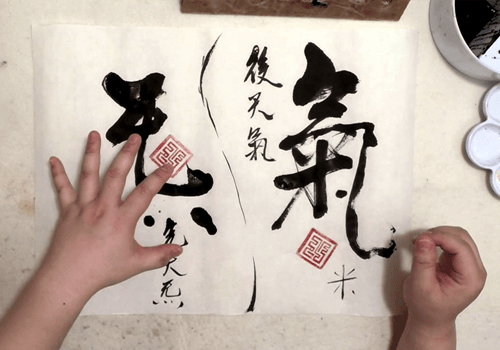 氣
米
後天氣
炁
先天炁